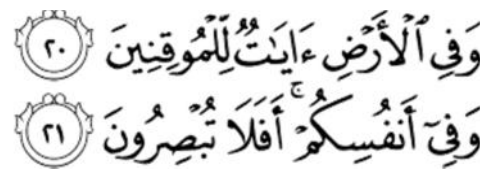 وَفِي ٱلْأَرْضِ ءَايَٰتٌ لِّلْمُوقِنِينَ ٢٠
وَفِىٓ أَنفُسِكُمْ ۚ أَفَلَا تُبْصِرُونَ ٢١